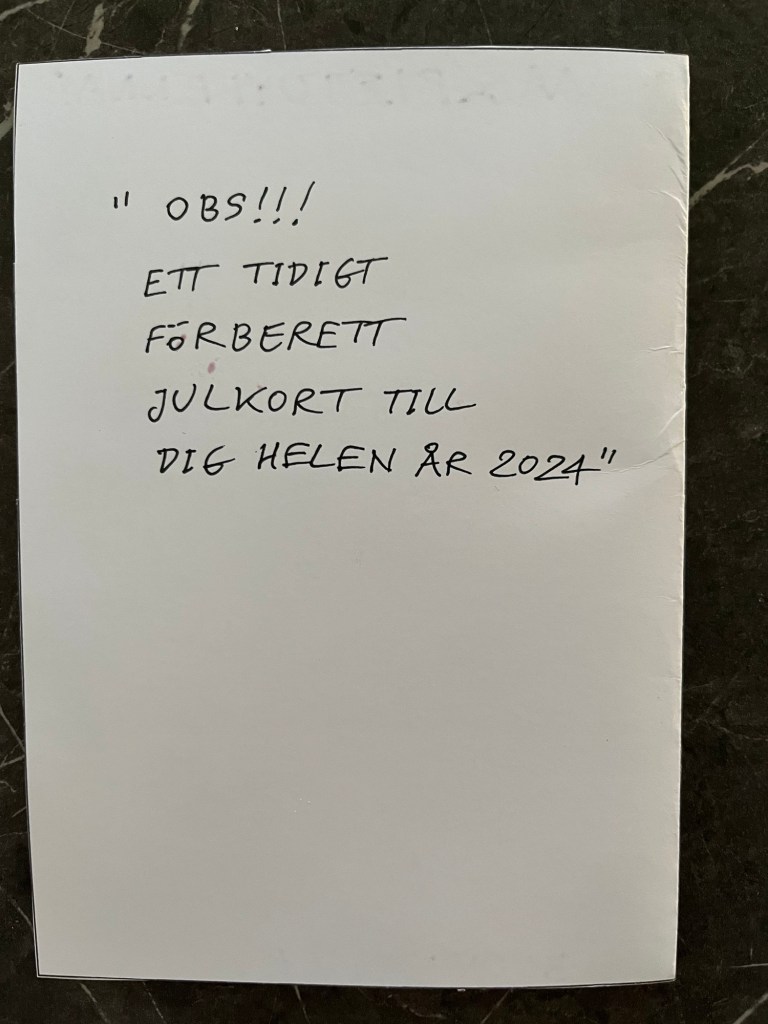 " OBS!!!
ETT TIDIGT
FÖRBERETT
JULKORT TILL
DIG HELEN ÅR 2024"